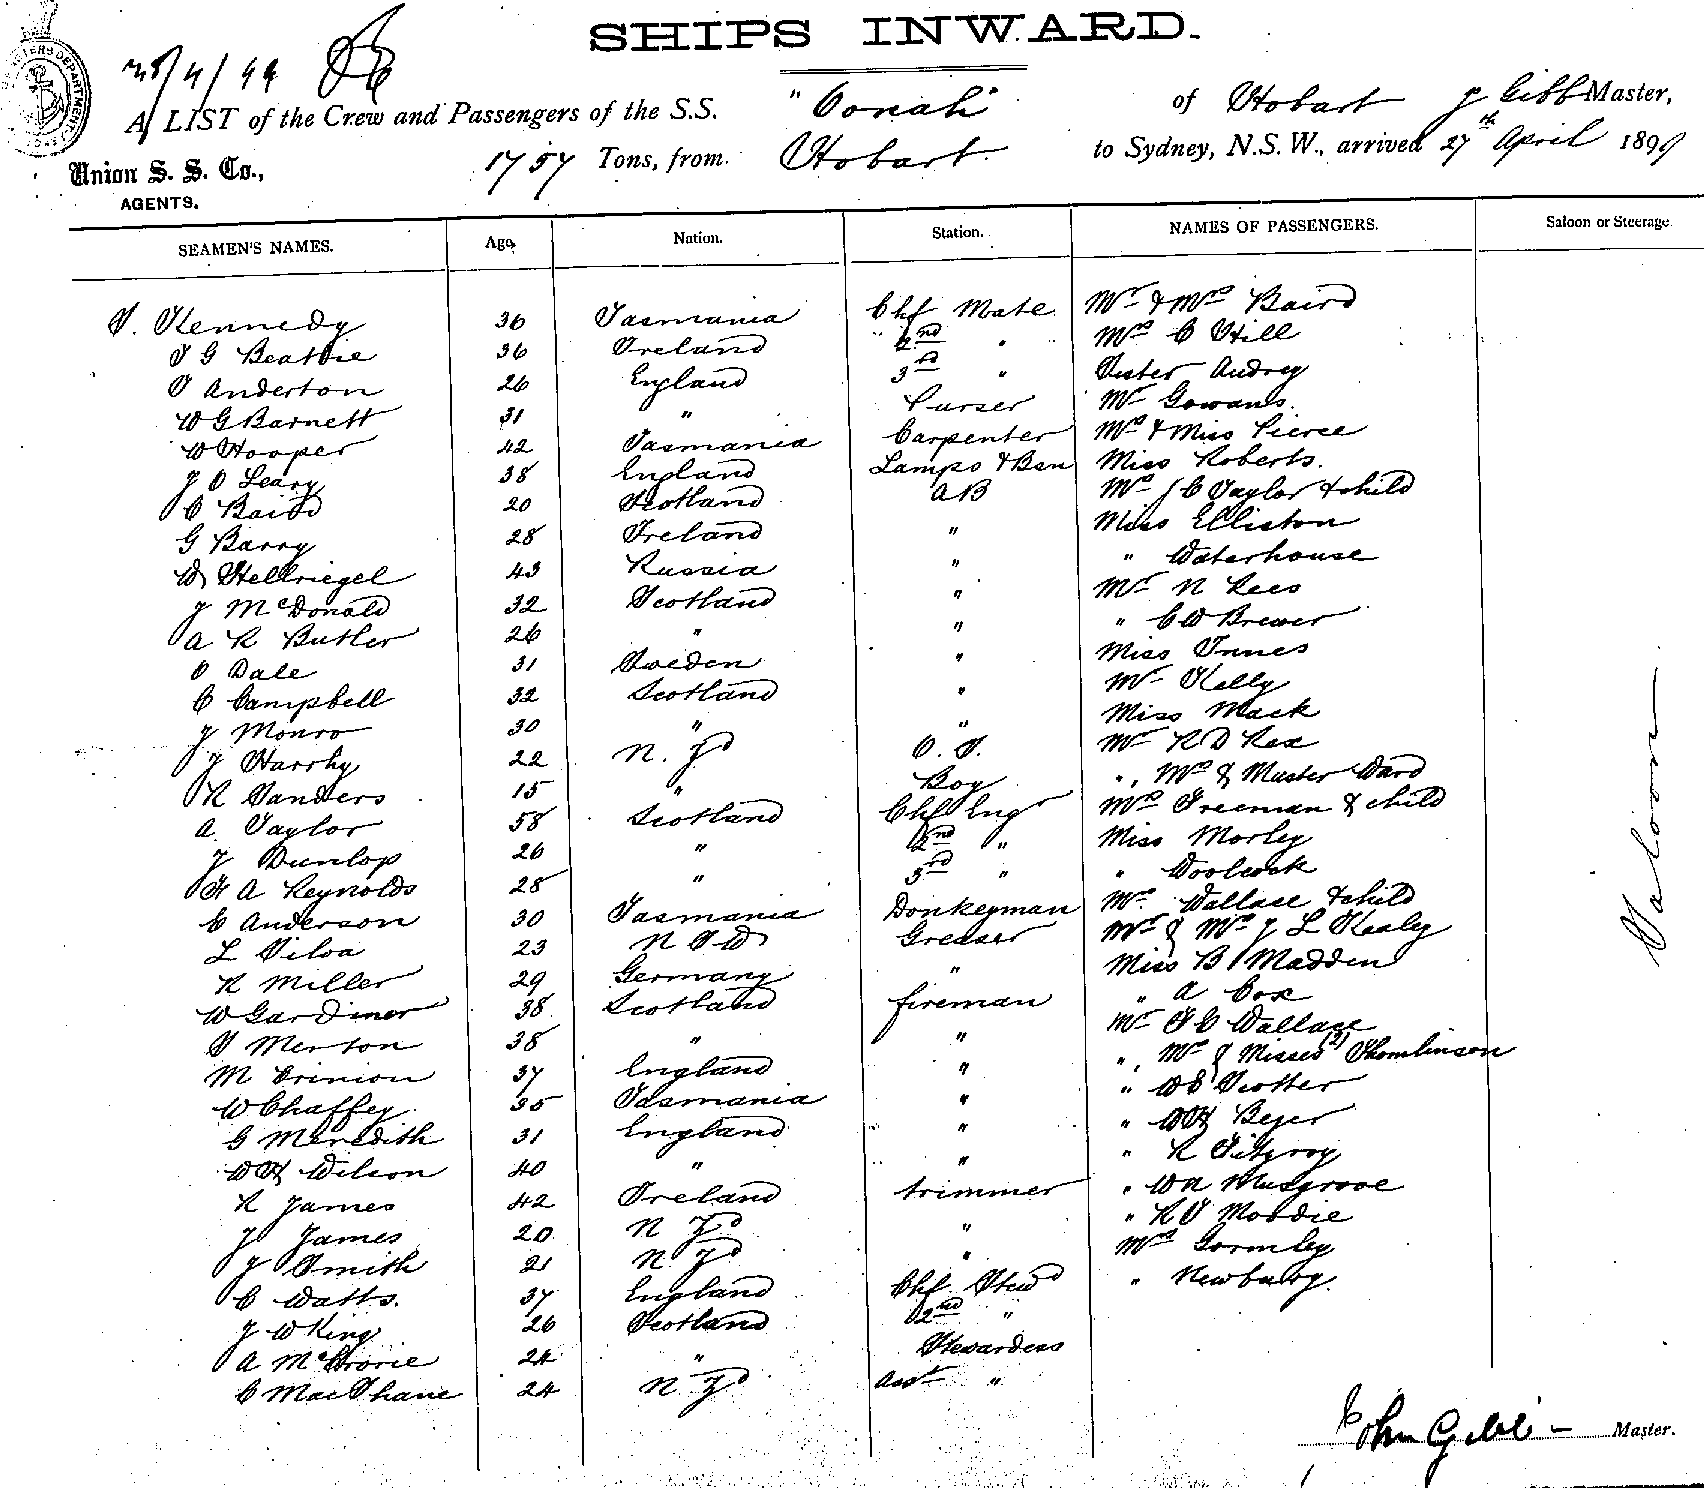 SHIPS INWARD.
28/4/99
A LIST of the Crew and Passengers of the S.S. "Oonah" of Hobart J Gibb Master,
Union S. S. Co., 1757 Tons, from Hobart to Sydney, N.S.W., arrived 27th April 1899
AGENTS.
SEAMEN'S NAMES. Age. Nation. Station. NAMES OF PASSENGERS. Saloon or Steerage
T. Kennedy 36 Tasmania Chf Mate Mr & Mrs Baird
J G Beattie 36 Ireland 2nd " Mrs C Hill
T Anderton 26 England 3rd " Sister Audrey
W G Barnett 31 " Purser Mr Gowans.
W Hooper 42 Tasmania Carpenter Mrs & Miss Pierce
J O Leary 38 England Lamps & Bsn Miss Roberts.
C Baird 20 Scotland AB Mrs J C Taylor & child
G Barry 28 Ireland " Miss Elliston
W Hellriegel 43 Russia " " Waterhouse
J McDonald 32 Scotland " Mr N Rees
A R Butler 26 " " " C W Brewer
O Dale 31 Sweden " Miss Innes
C Campbell 32 Scotland " Mr Kelly
J Monro 30 " " Miss Mack
J Harrhy 22 N. Zd O. S. Mr R D Rex
R Sanders 15 " Boy ", Mrs & Master Ward
A Taylor 58 Scotland Chf Engr Mrs Freeman & child
J Dunlop 26 " 2nd " Miss Morley
H A Reynolds 28 " 3rd " " Woolcock
C Anderson 30 Tasmania Donkeyman Mrs Wallace & child
L Silva 23 N S W Greaser Mr & Mrs J L Kealey
R Miller 29 Germany " Miss B Madden
W Gardiner 38 Scotland fireman " A Cox
T Merton 38 " " Mr T C Wallace
M Crinion 37 England " ", Mrs & Misses (2) Thomlinson
W Chaffey 35 Tasmania " " W E Trotter
G Meredith 31 England " " W H Beyer
W H Wilson 40 " " " R Fitzroy
R James 42 Ireland trimmer " W A Musgrove
J James 20 N Zd " " R S Moodie
J Smith 21 N Zd " Mrs Gormley
C Watts. 37 England Chf Stewd " Newbury.
J W King 26 Scotland 2nd "
A McCrorie 24 " Stewardess
C MacShane 24 N Zd Asst "
Saloon
John Gibb Master.